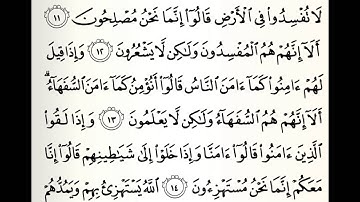 لَا تُفْسِدُوا۟ فِى ٱلْأَرْضِ قَالُوٓا۟ إِنَّمَا نَحْنُ مُصْلِحُونَ ١١
أَلَآ إِنَّهُمْ هُمُ ٱلْمُفْسِدُونَ وَلَـٰكِن لَّا يَشْعُرُونَ ١٢ وَإِذَا قِيلَ
لَهُمْ ءَامِنُوا۟ كَمَآ ءَامَنَ ٱلنَّاسُ قَالُوٓا۟ أَنُؤْمِنُ كَمَآ ءَامَنَ ٱلسُّفَهَآءُ ۗ
أَلَآ إِنَّهُمْ هُمُ ٱلسُّفَهَآءُ وَلَـٰكِن لَّا يَعْلَمُونَ ١٣ وَإِذَا لَقُوا۟
ٱلَّذِينَ ءَامَنُوا۟ قَالُوٓا۟ ءَامَنَّا وَإِذَا خَلَوْا۟ إِلَىٰ شَيَـٰطِينِهِمْ قَالُوٓا۟ إِنَّا
مَعَكُمْ إِنَّمَا نَحْنُ مُسْتَهْزِءُونَ ١٤ ٱللَّهُ يَسْتَهْزِئُ بِهِمْ وَيَمُدُّهُمْ